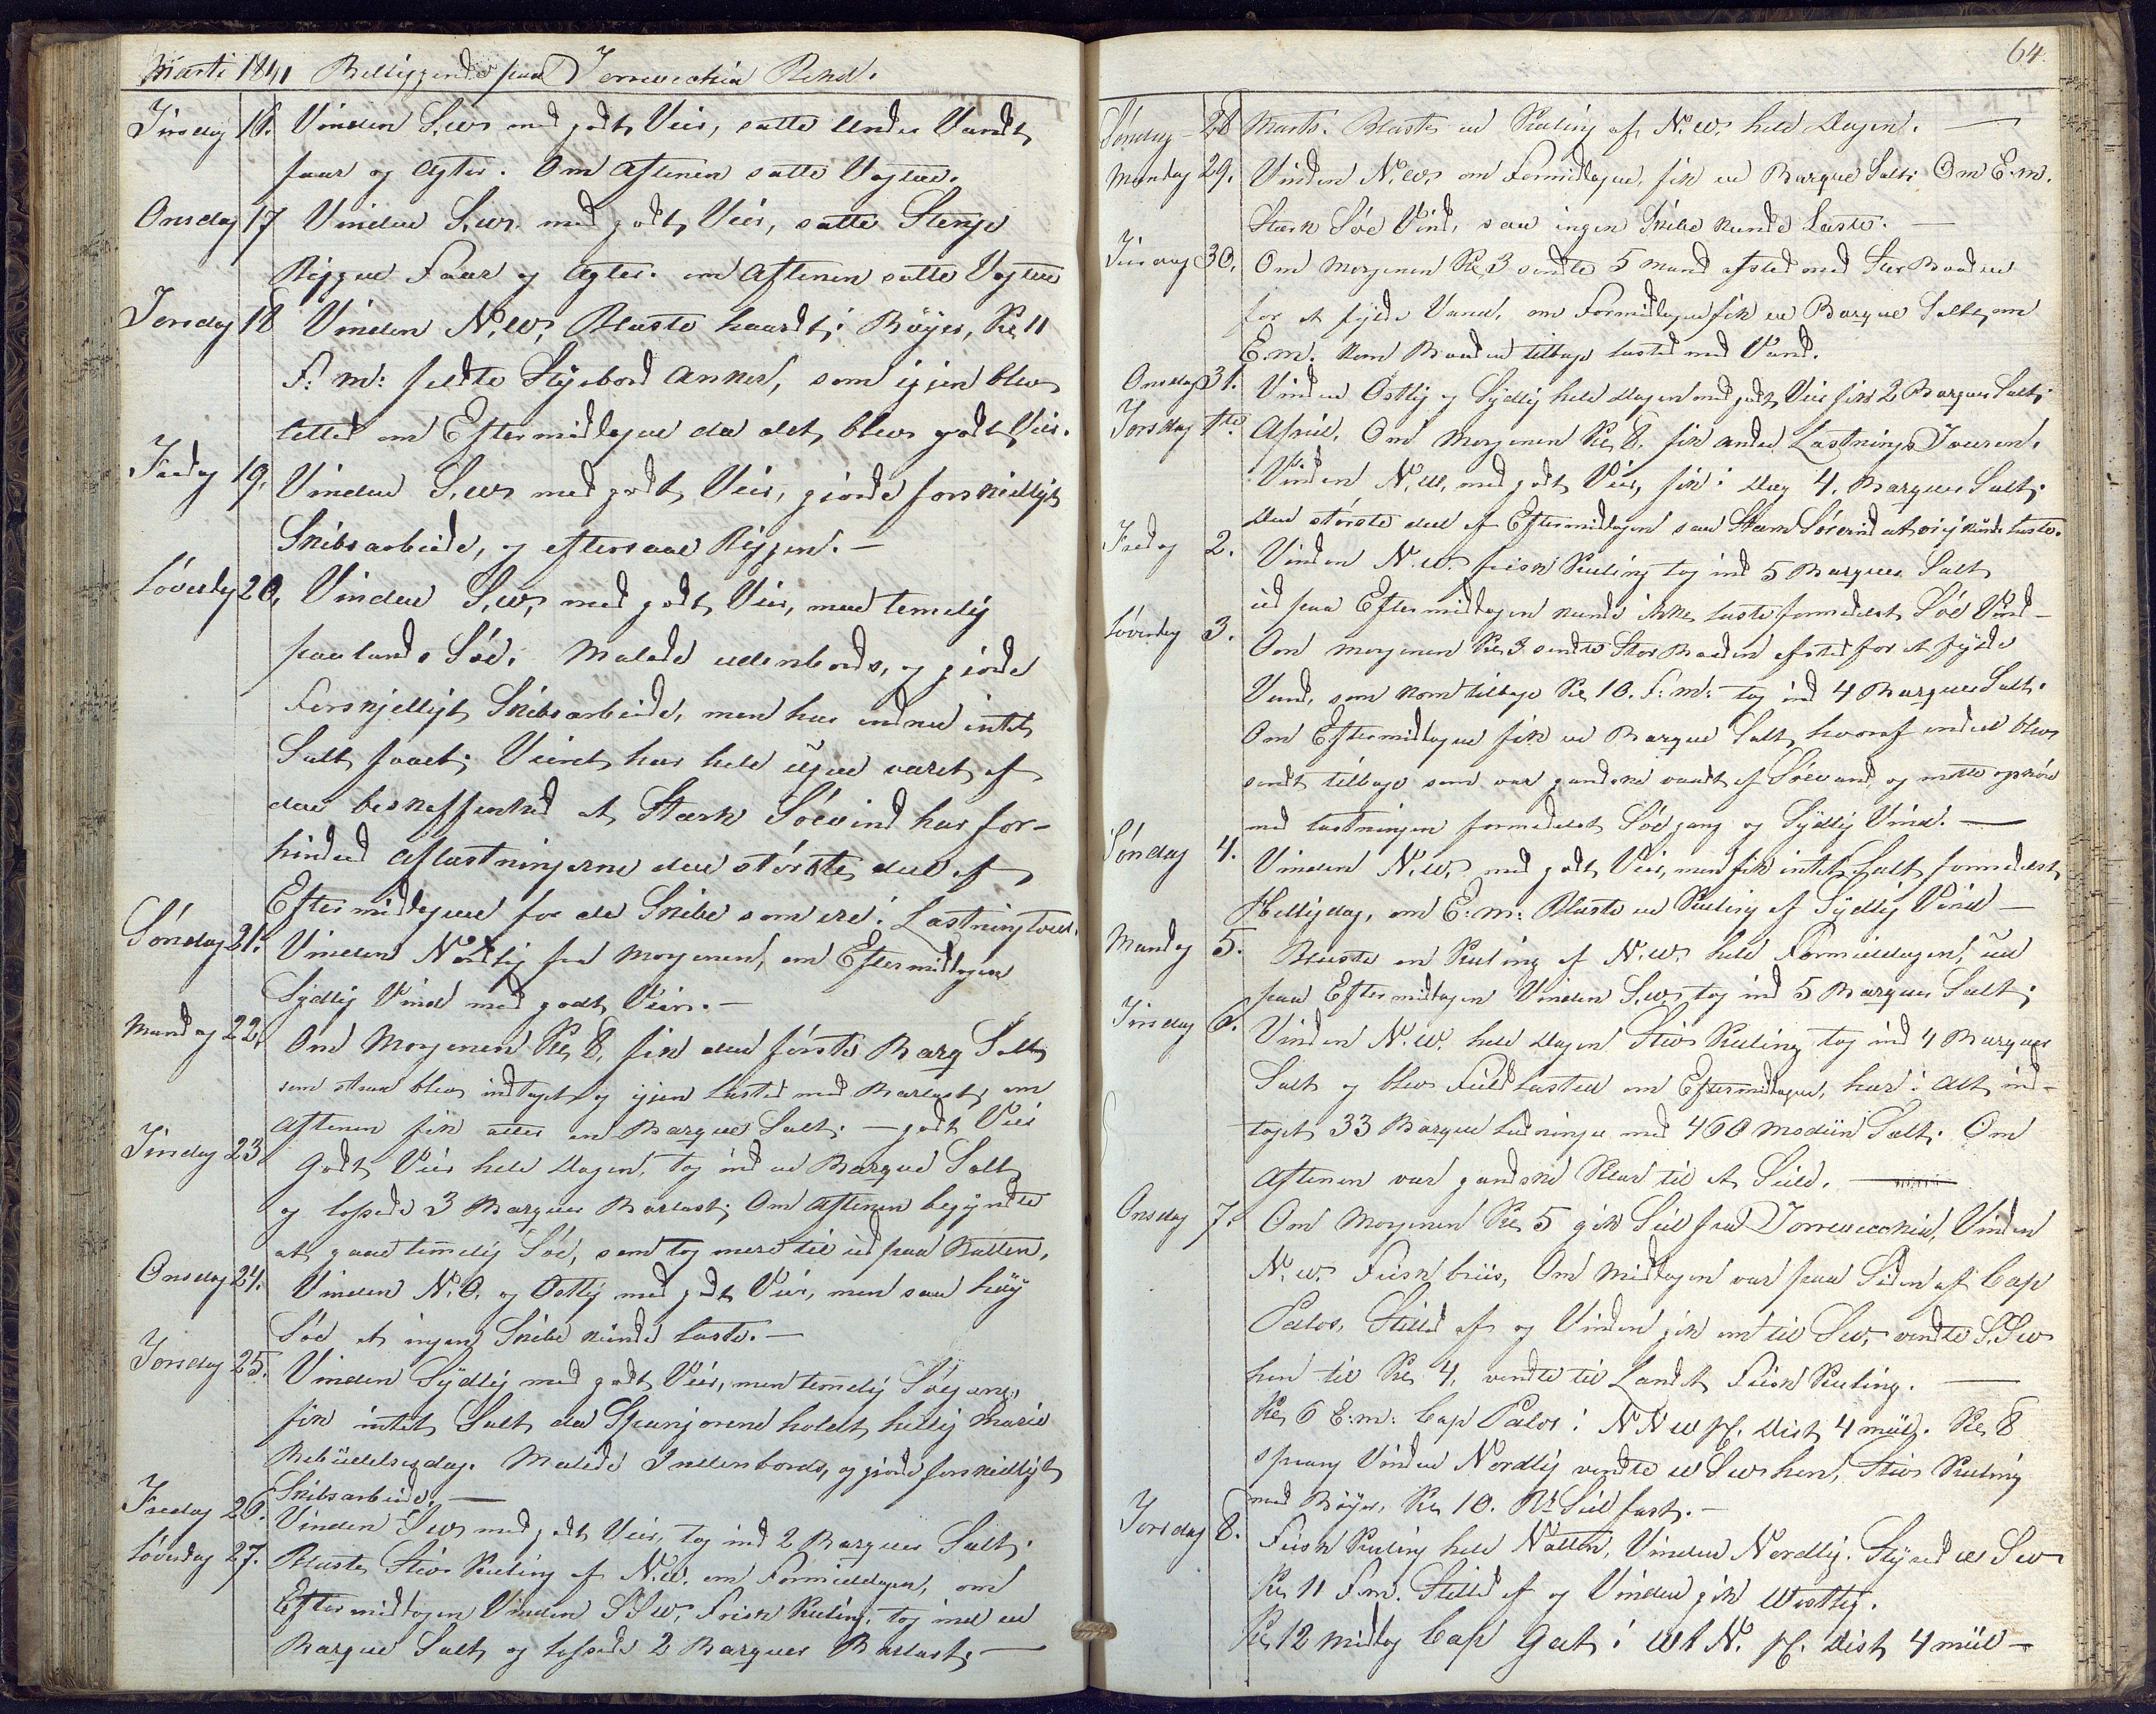 Marti 1841 Beliggende paa Torrevechia Rehd.
Tirsdag 16. Vinden S.W. med godt Veir, satte Under Vandt
faar og Agter. Om Aftenen satte Vagten.
Onsdag 17 Vinden S.W. med godt Veir, satte Stenge
Riggen Faar og Agter. om Aftenen satte Vagten
Torsdag 18 Vinden N.W. Blaste haardt i Böyer, Kl 11
F:m: feldte Styrbord Anker, som igjen blev
lettet om Eftermiddagen da det blev godt Veir.
Fredag 19. Vinden S.W. med godt Veir, giorde forskielligt
Skibsarbeide, og eftersaae Riggen. —
Löverdag 20. Vinden S.W. med godt Veir, med temelig
paalands Söe. Malede udenbords, og giorde
Forskjelligt Skibsarbeide, men har endnu intet
Salt faaet; Veiret har hele Ugen været af
den beskaffenhed at Stærk Söevind har for-
hindred Aflastningerne den störste deel af
Eftermiddagene for de Skibe som ere i Lastningtour.
Söndag 21. Vinden Nordlig fra Morgenen, om Eftermiddagen
Sydlig Vind med godt Veir. —
Mandag 22. Om Morgenen Kl 8, fik den förste Barq Salt
som strax blev indtaget og igjen lastet med Barlast, om
Aftenen fik atter en Barque Salt. — godt Veir
Tirsdag 23 Godt Veir hele Dagen, tog ind en Barque Salt
og lossede 3 Barquer Barlast; Om Aftenen begyndte
at gaae temelig Söe, som tog mere til ud paa Natten.
Onsdag 24. Vinden N.O. og Ostlig med godt Veir, men saa höy
Söe at ingen Skibe kunde laste. —
Torsdag 25. Vinden Sydlig med godt Veir, men temelig Söegang,
fik intet Salt da Spanjorene holdt hellig Marie
Bebudelsesdag. Malede Indenbords, og giorde forskielligt
Skibsarbeide. —
Fredag 26. Vinden SW med godt Veir, tog ind 2 Barquer Salt.
Löverdag 27. Blaste Stiv Kuling af N.W. om Formiddagen, om
Eftermiddagen Vinden SSW, Frisk Kuling, tog ind en
Barque Salt og lossede 2 Barquer Barlast. —
64.
Söndag 28 Marts. Blaste en Kuling af N.W. hele Dagen. —
Mandag 29. Vinden N.W. om Formiddagen, fik en Barque Salt. Om E.m.
Stærk Söe Vind, saa ingen Skibe kunde Laste. —
Tirsdag 30. Om Morgenen Kl 3 sendte 5 mand afsted med StorBaaden
for at fylde Vand, om Formiddagen fik en Barque Salt, om
E.m. kom Baaden tilbage lastet med Vand.
Onsdag 31. Vinden Ostlig og Sydlig hele Dagen med godt Veir fik 2 Barquer Salt.
Torsdag 1te April. Om Morgenen Kl 8, fik anden Lastnings Touren.
Vinden N.W. med godt Veir, fik i Dag 4 Barquer Salt.
den störste deel af Eftermiddagen saa Stærk Söevind at vi ej kunde laste.
Fredag 2. Vinden N.W. frisk Kuling tog ind 5 Barquer Salt
ud paa Eftermiddagen kunde ikke laste formedelst Söe Vind —
Löverdag 3. Om Morgenen Kl 3 sendte StorBaaden afsted for at fylde
Vand, som kom tilbage Kl 10. F:m: tog ind 4 Barquer Salt.
Om Eftermiddagen fik en Barque Salt, hvoraf endeel blev
sendt tilbage som var gandske vaadt af Söevand, og matte ophöre
med lastningen formedelst Söegang og Sydlig Vind. —
Söndag 4. Vinden N.W. med godt Veir, men fik intet Salt formedelst
Helligdag, om E:m: Blaste en Kuling af Sydlig Vind —
Mandag 5. Blaste en Kuling af N.W. hele Formiddagen, ud
paa Eftermiddagen Vinden S.W. tog ind 5 Barquer Salt.
Tirsdag 6. Vinden N.W. hele Dagen Stiv Kuling tog ind 4 Barquer
Salt og blev Fuldlasted om Eftermiddagen, har i Alt ind-
taget 33 Barque Ladninger med 460 Modiin Salt. Om
Aftenen var gandske Klar til at Seile. —
Onsdag 7. Om Morgenen Kl 5 gik Seil fra Torrevecchia, Vinden
N.W. Frisk briis, Om Middagen var paa Siden af Cap
Palos, Stilled af og Vinden gik om til SW, vendte SSW
hen til Kl 4, vendte til Landet Frisk Kuling. —
Kl 6 E:m: Cap Palos i NNW pC. Dist 4 miil. Kl 8
sprang Vinden Nordlig vendte W SW hen, Stiv Kuling
med Böyer, Kl 10. Seil fast. —
Torsdag 8. Frisk Kuling hele Natten, Vinden Nordlig. Styred W SW
Kl 11 F.m. Stilled af og Vinden gik Westlig.
Kl 12 Middag Cap Gat i W t N. pC. Dist 4 miil —